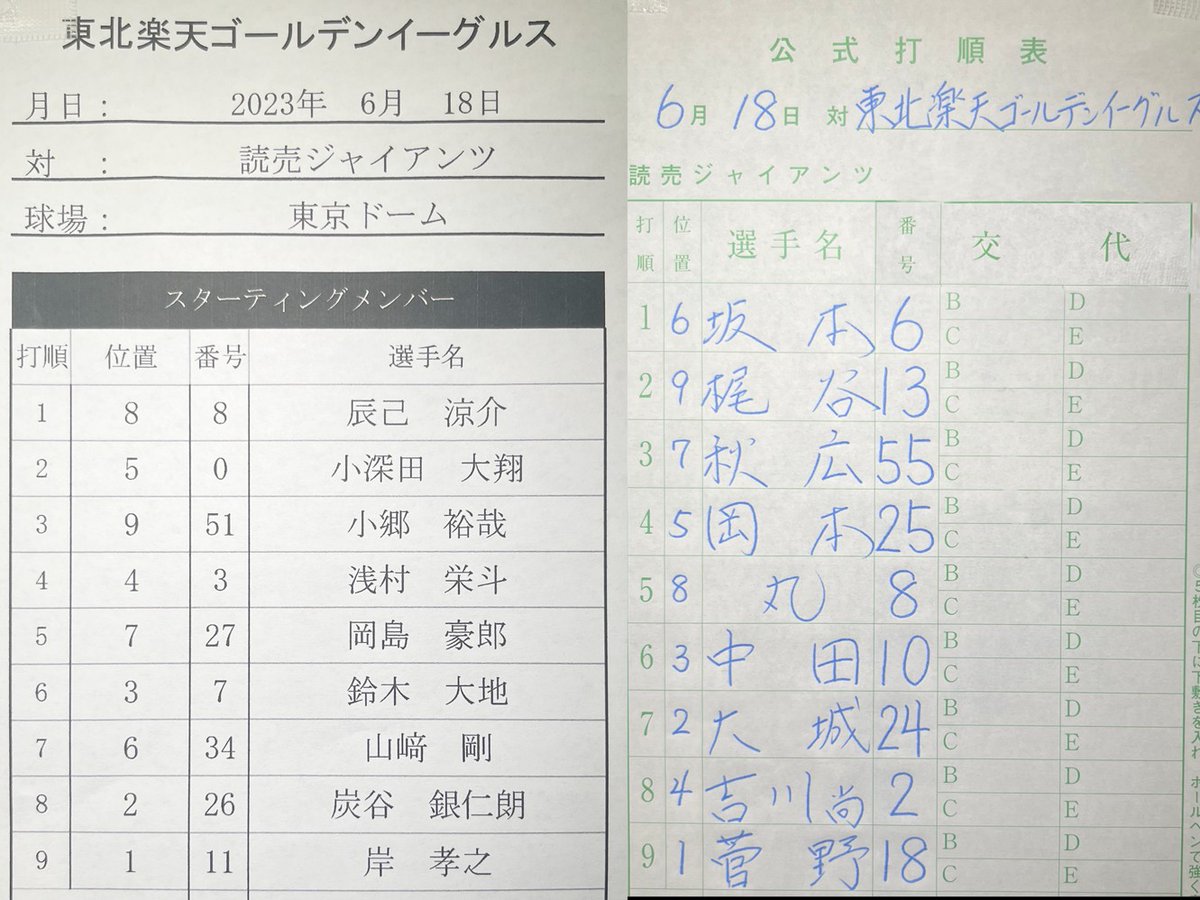 東北楽天ゴールデンイーグルス
月日: 2023年 6月 18日
対 : 読売ジャイアンツ
球場: 東京ドーム
スターティングメンバー
打順 位置 番号 選手名
1 8 8 辰己 涼介
2 5 0 小深田 大翔
3 9 51 小郷 裕哉
4 4 3 浅村 栄斗
5 7 27 岡島 豪郎
6 3 7 鈴木 大地
7 6 34 山﨑 剛
8 2 26 炭谷 銀仁朗
9 1 11 岸 孝之
公式打順表
6月 18日 対 東北楽天ゴールデンイーグルス
読売ジャイアンツ
打順 位置 選手名 番号 交代
1 6 坂本 6 B D
C E
2 9 梶谷 13 B D
C E
3 7 秋広 55 B D
C E
4 5 岡本 25 B D
C E
5 8 丸 8 B D
C E
6 3 中田 10 B D
C E
7 2 大城 24 B D
C E
8 4 吉川尚 2 B D
C E
9 1 菅野 18 B D
C E
◎5枚目の下に下敷きを入れ ボールペンで強く